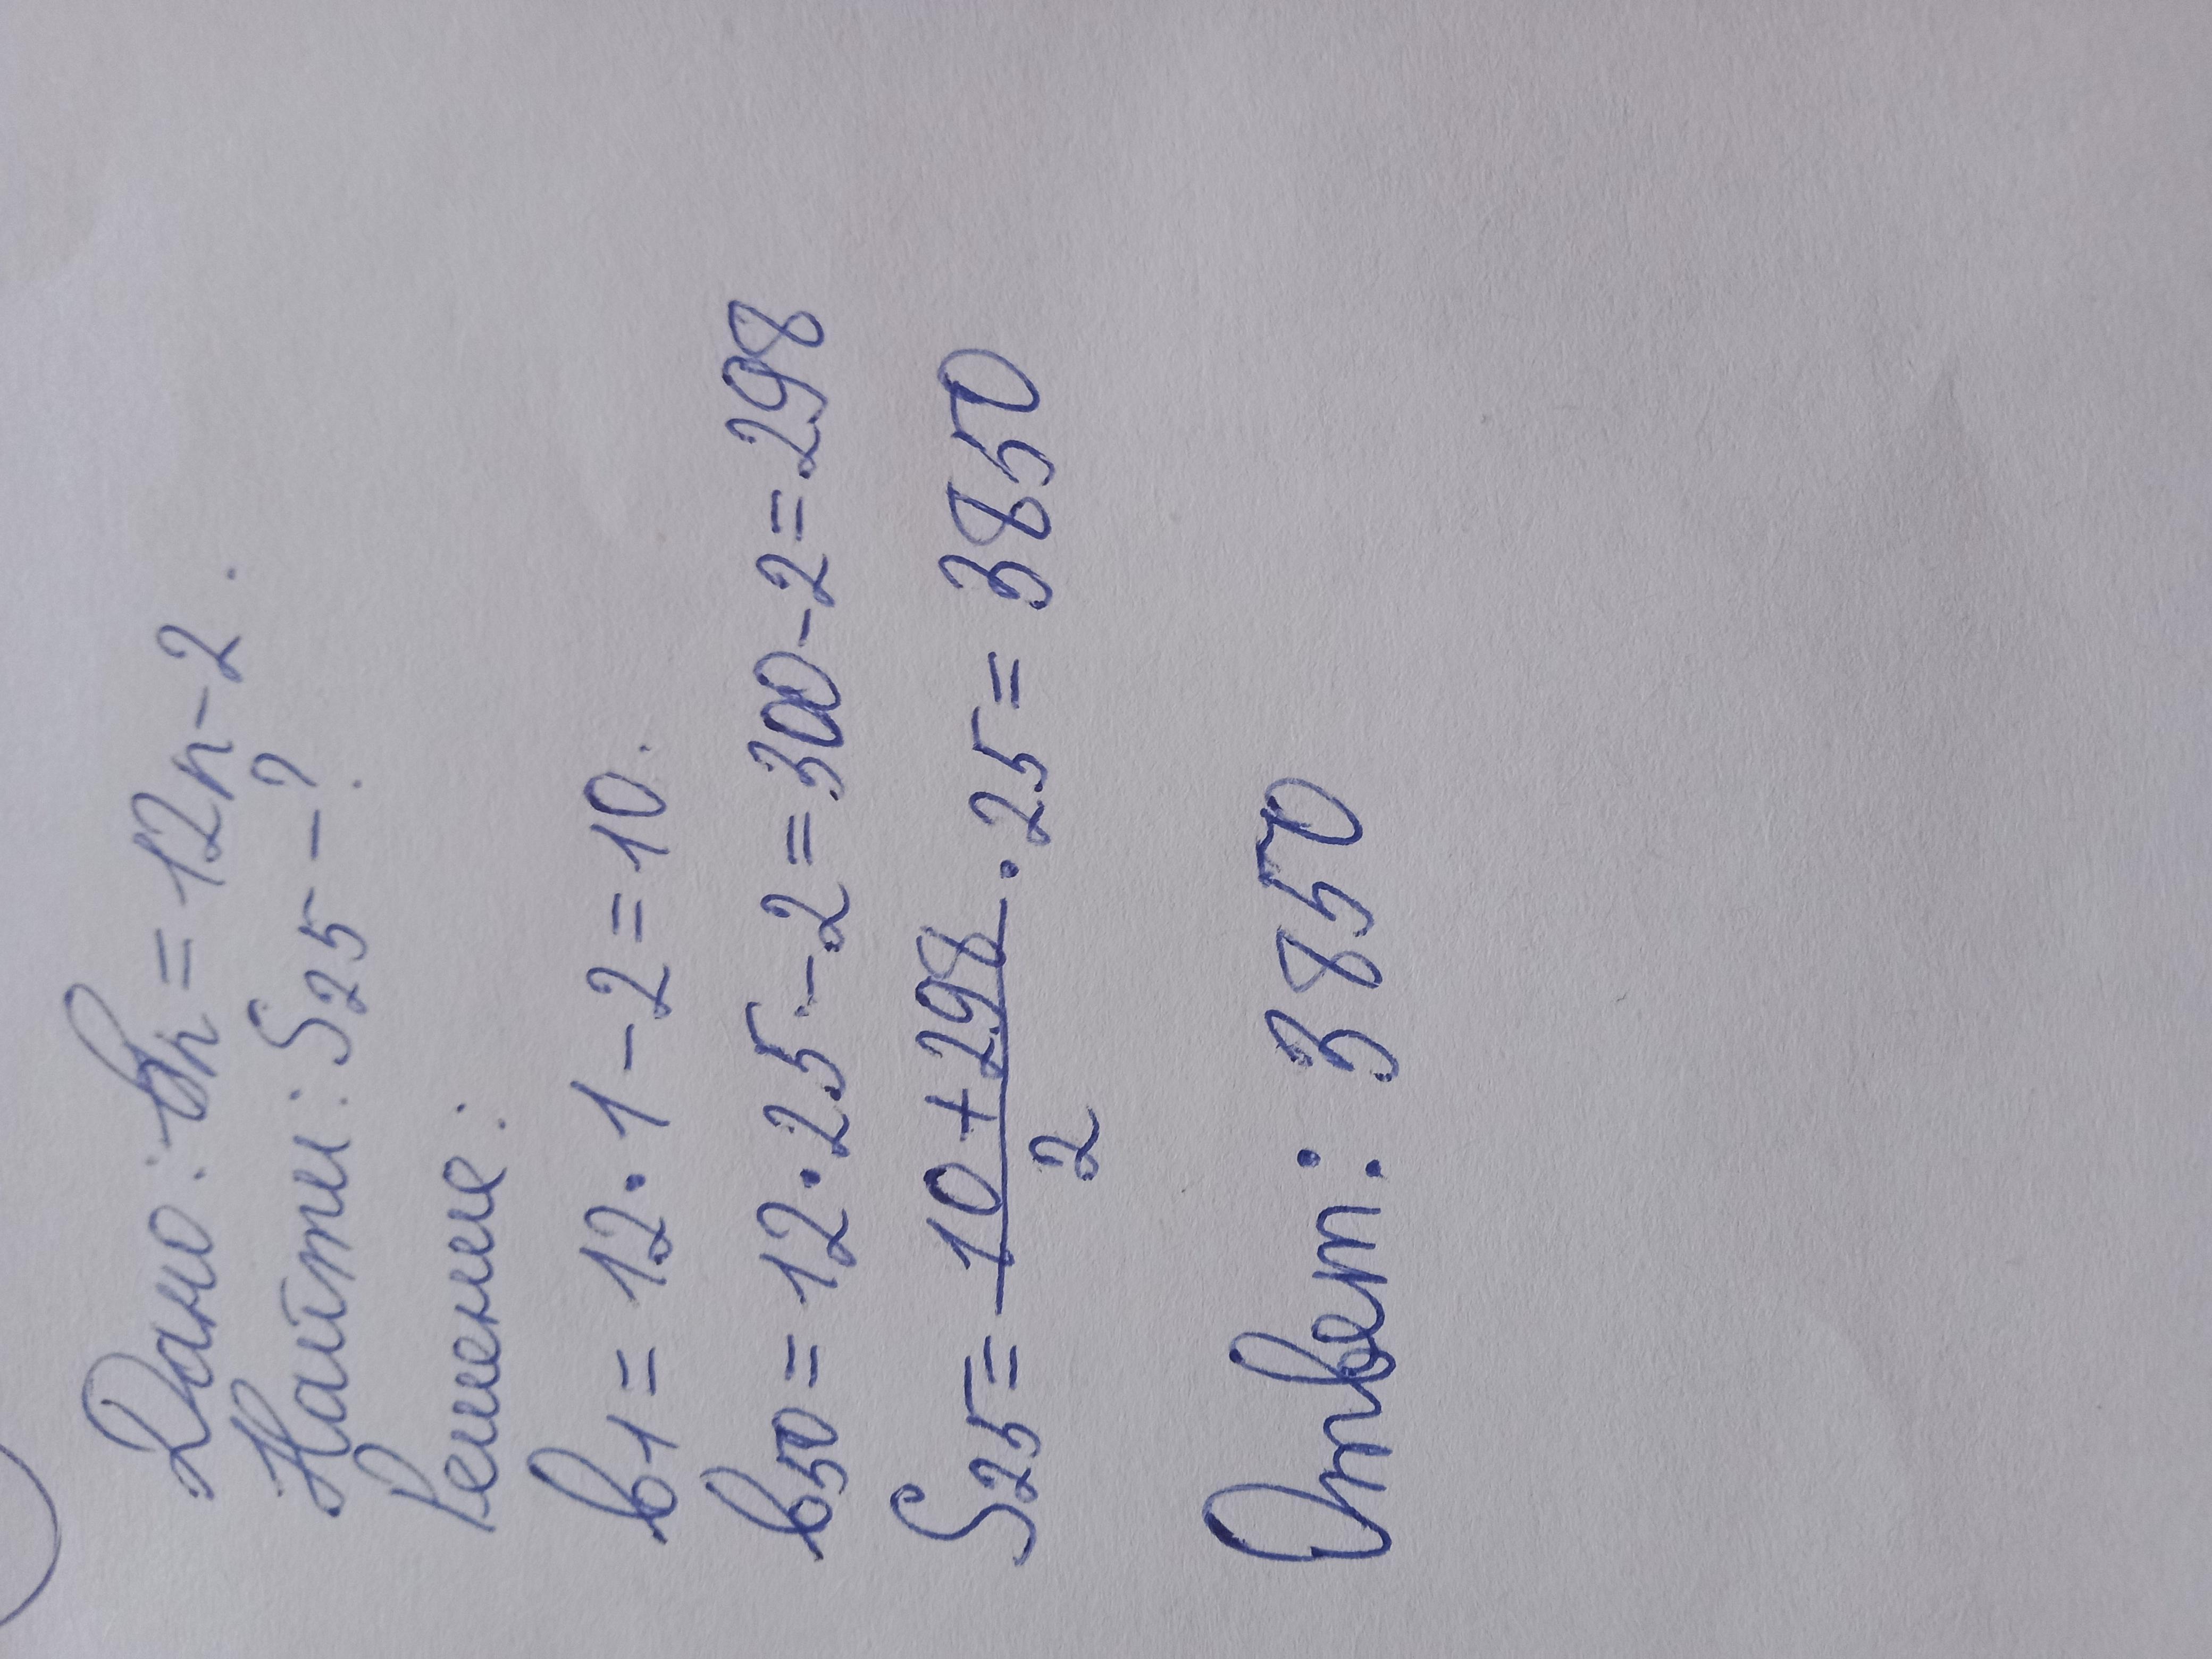 Дано: вn = 12n-2.
Найти: S25 - ?
Решение:
в1 = 12·1-2=10.
в50 = 12·25-2=300-2=298
S25 = 10+298/2 · 25 = 3850
Ответ: 3850